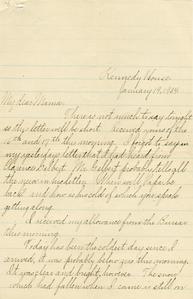 Kennedy House.
January 19, 1884.
My dear Mama.
There is not much to say tonight
so this letter will be short. I received yours of the
15th and 17th this morning. I forgot to say in
my yesterdays letter that I had heard from
Clarence Delbert. Mr. probably tells all
the news in his letter. When will Papa be
back and how is his cold of which you speak
getting along.
I received my allowance from the Bursar
this morning.
Today has been the coldest day since I
arrived, it was probably below zero this morning.
It was clear and bright, however. The snow
which had fallen when I came is still on